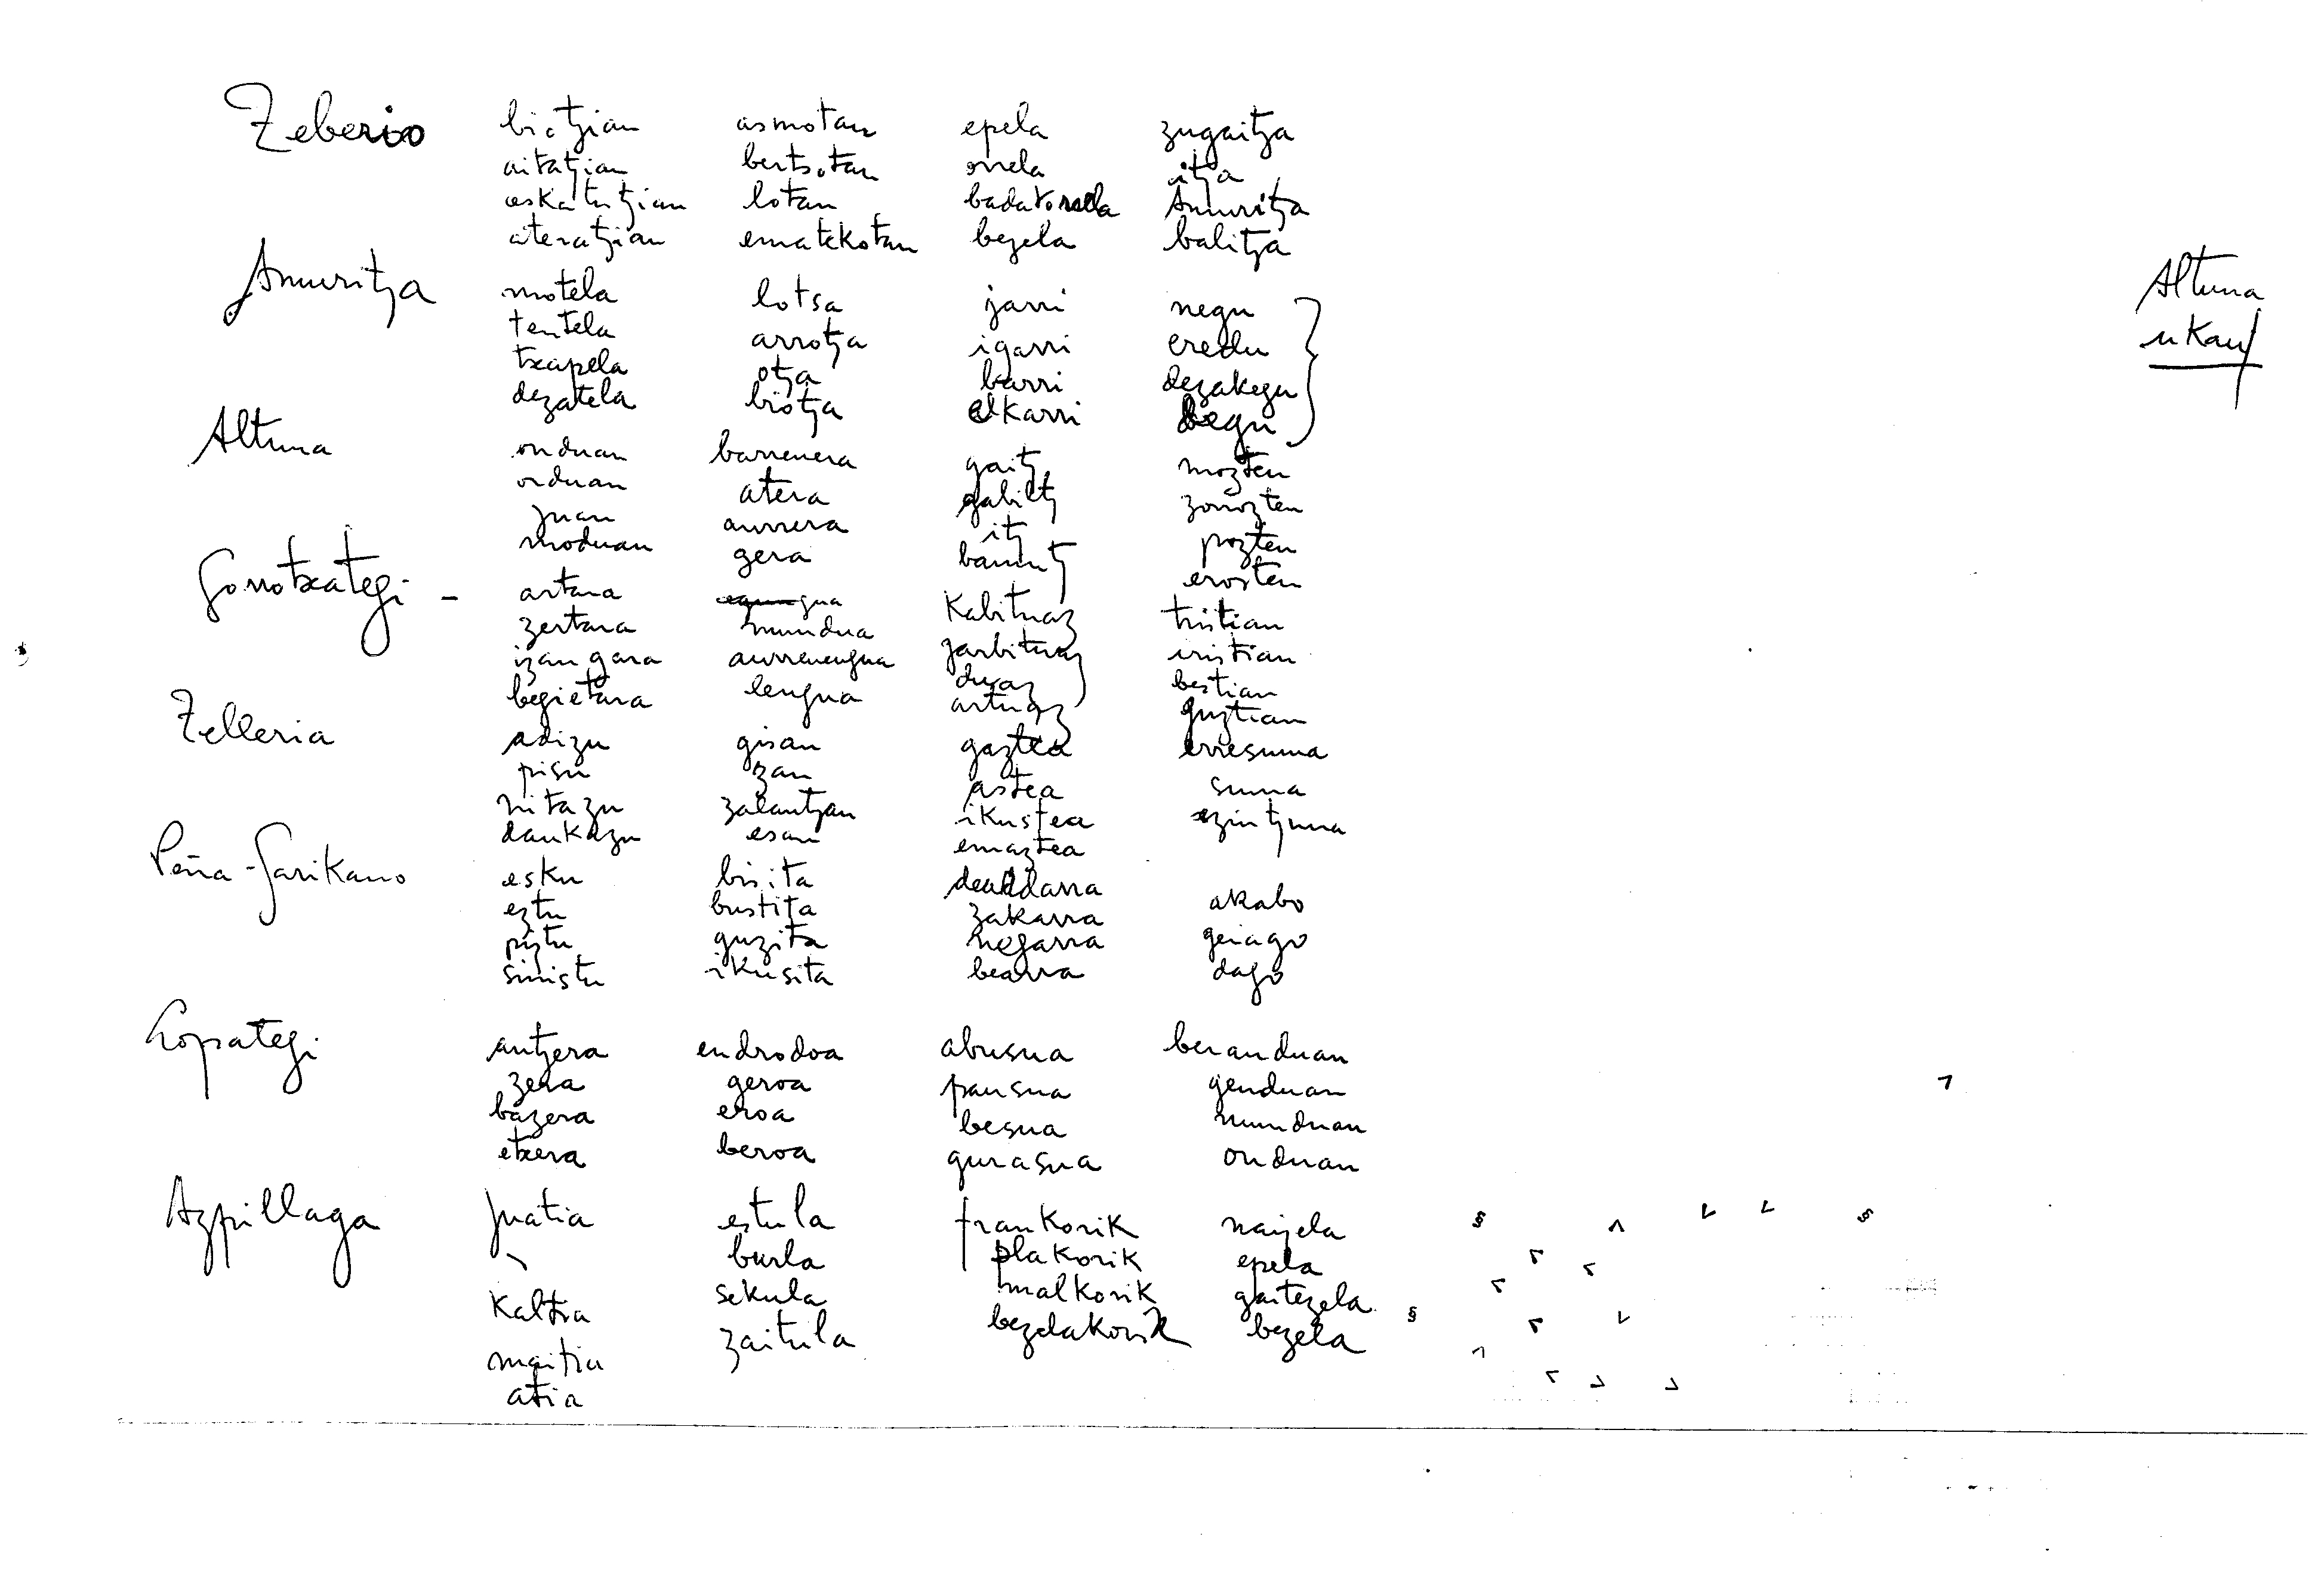 Zeberio biotzian asmotan epela zugaitza
aitatzian bertsotan onela itza
eskatutzian lotan badatorrela Amuritza
ateratzian ematekotan bezela balitza
Amuritza motela lotsa jarri negu
tentela arrotza igarri eredu
txapela otza barri dezakegu
dezatela biotza elkarri degu
Altuna
ukan
Altuna onduan barrenera gaitz mozten
orduan atera gabiltz zorrozten
juan aurrera itz pozten
moduan gera banuntz erosten
Gorrotxategi - artara gua kabituaz tristian
zertara mundua garbituaz iristian
izan gara aurrenengua duaz bestian
begietara lengua artuaz guztian
Zelleria adizu gisan gaztea erresuma
pisu zan astea suma
nitazu zalantzan ikustea ezintzuna
daukazu esan emaztea
Peña-Garikano esku bisita deaddarra akabo
eztu bustita zakarra geiago
piztu guzita negarra dago
sinistu ikusita bearra
Lopategi antzera endrodoa abusua beranduan
zera geroa pausua genduan
bazera eroa besua munduan
etxera beroa gurasua onduan
Azpillaga juatia estula frankorik naizela
burla plakorik epela
kaltia sekula malkorik gaitezela
maitia zaitula bezelakorik bezela
atia